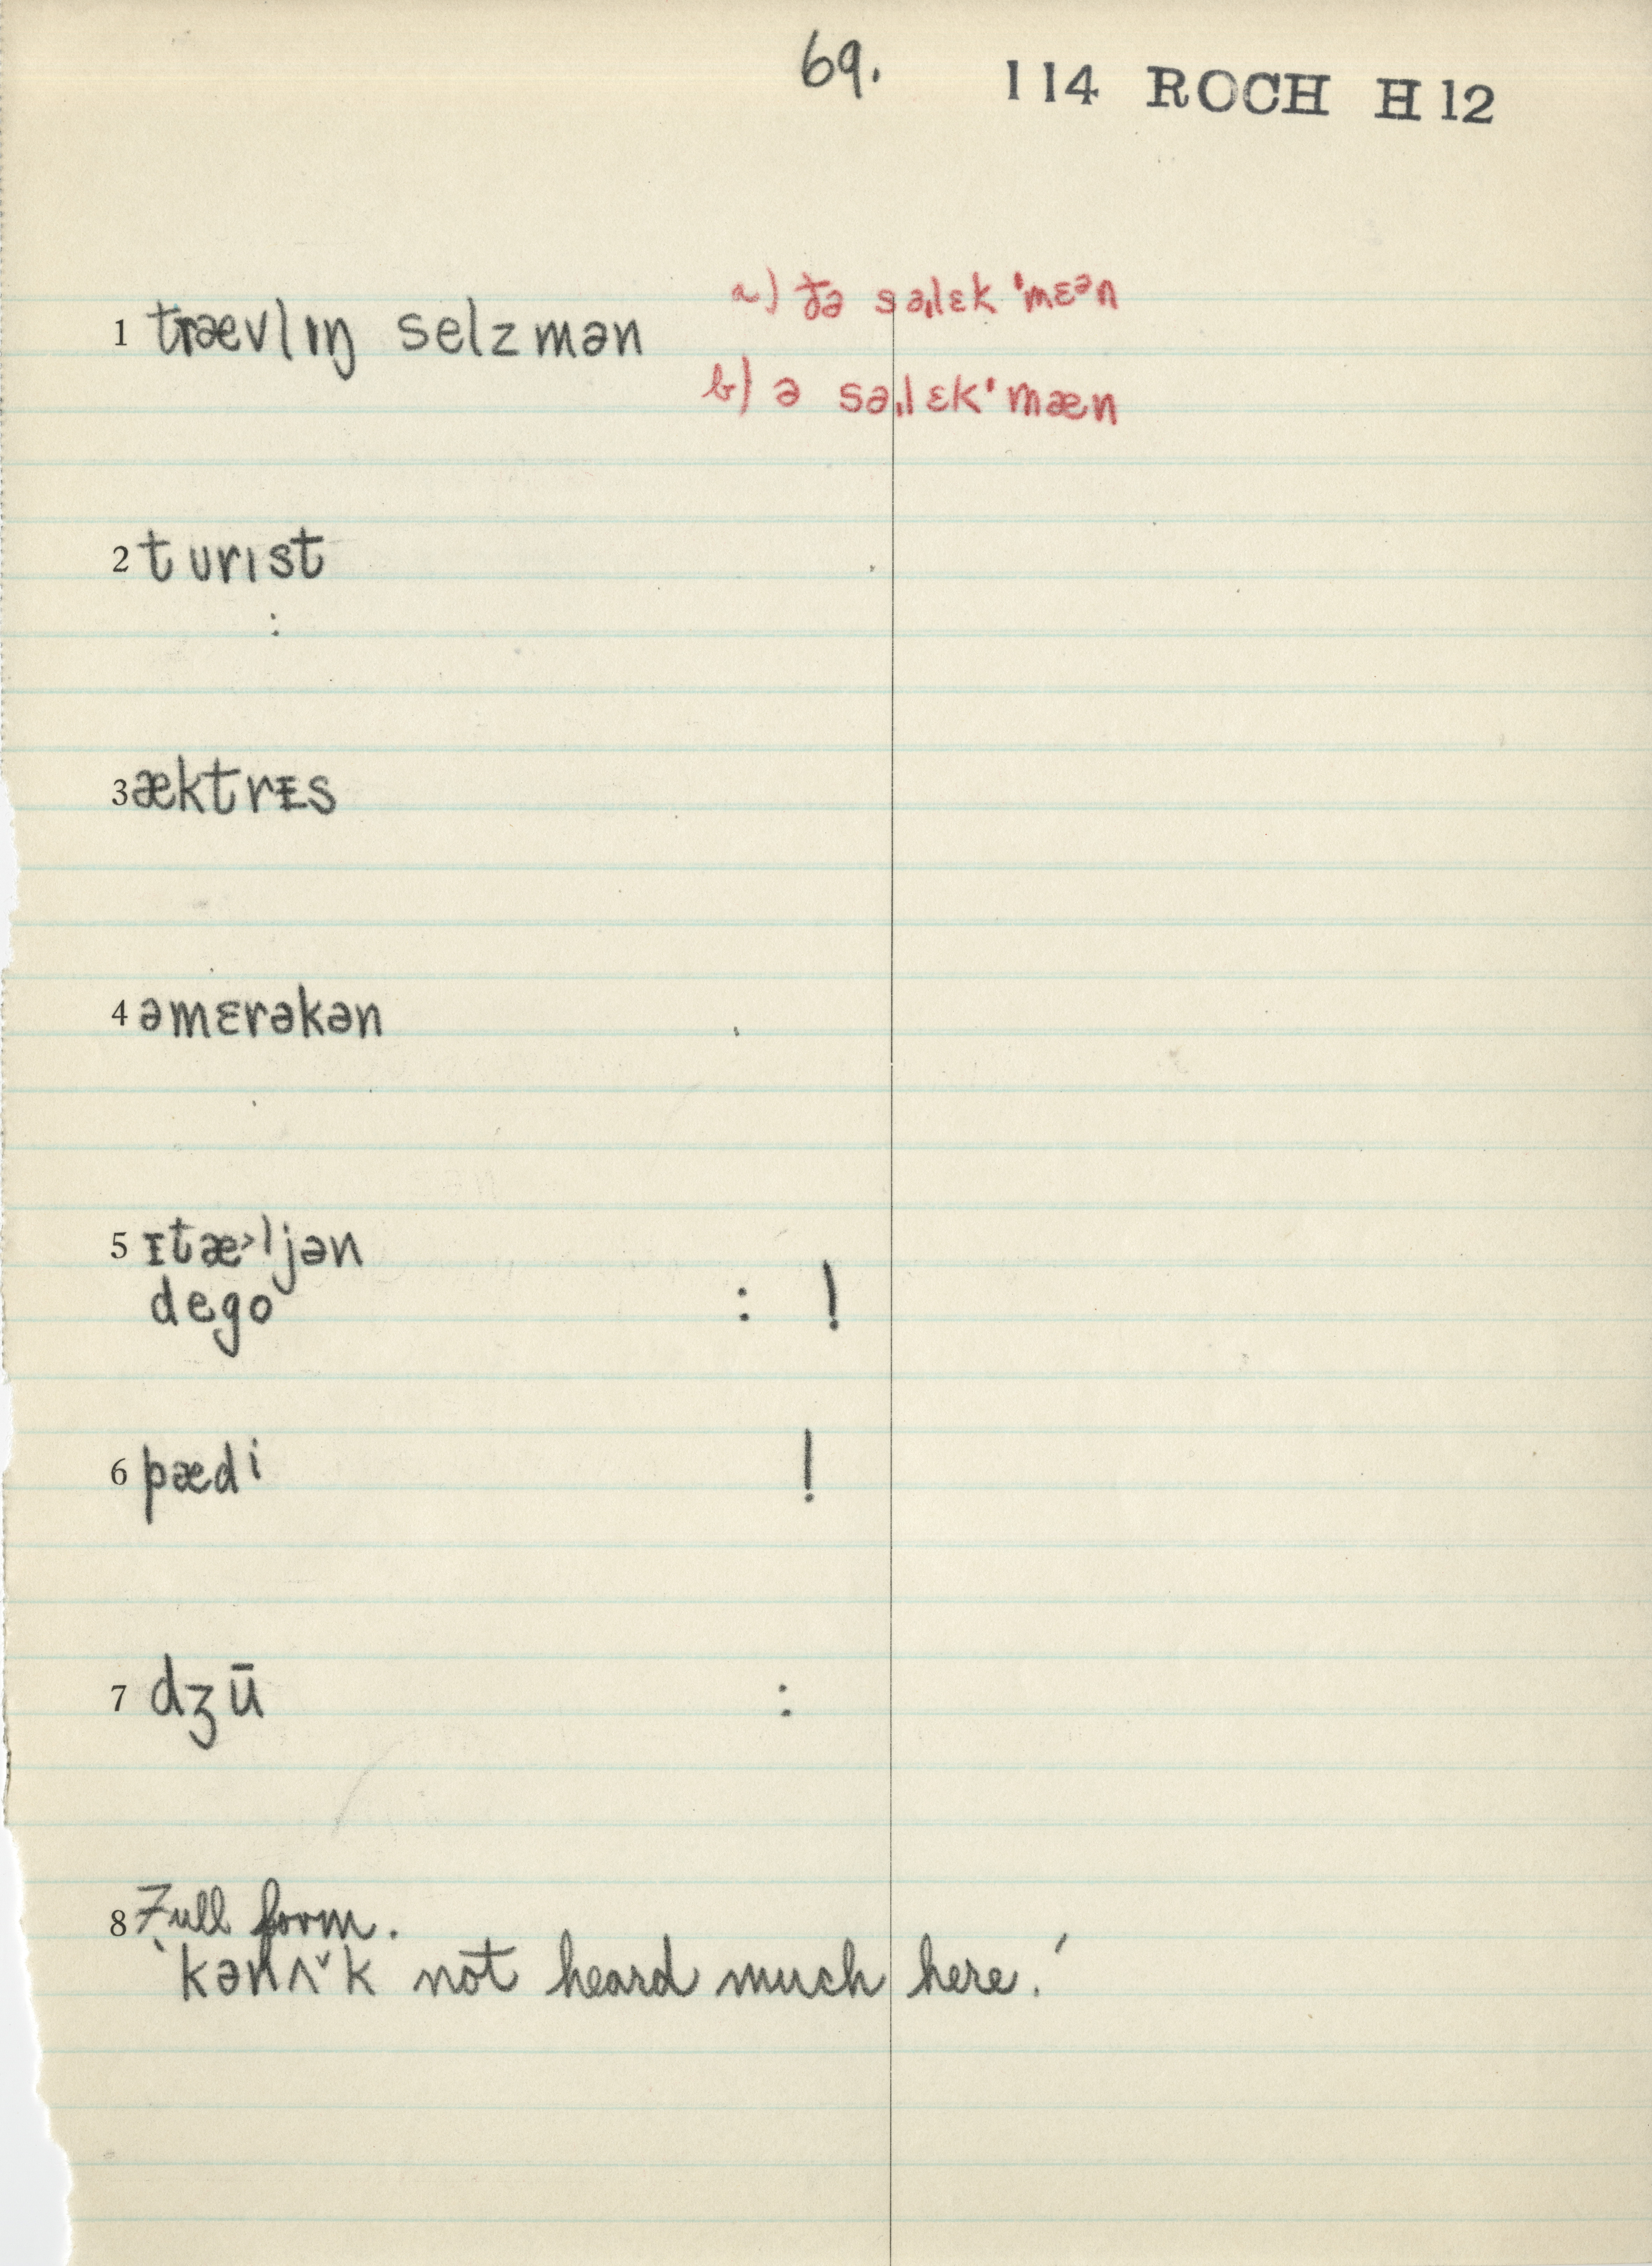 69. 114 ROCH H12
1 trævlɪŋ selzmən a) ðə səˌlɛkˈmɛᵊn
b) ə səˌlɛkˈmæn
2 turıst
:
3 æktrɪs
4 əmɛrəkən
5 ɪtæ˃ljən
dego : !
6 pædi !
7 dʒū :
8 Full form.
‘kənʌ˅k not heard much here.’